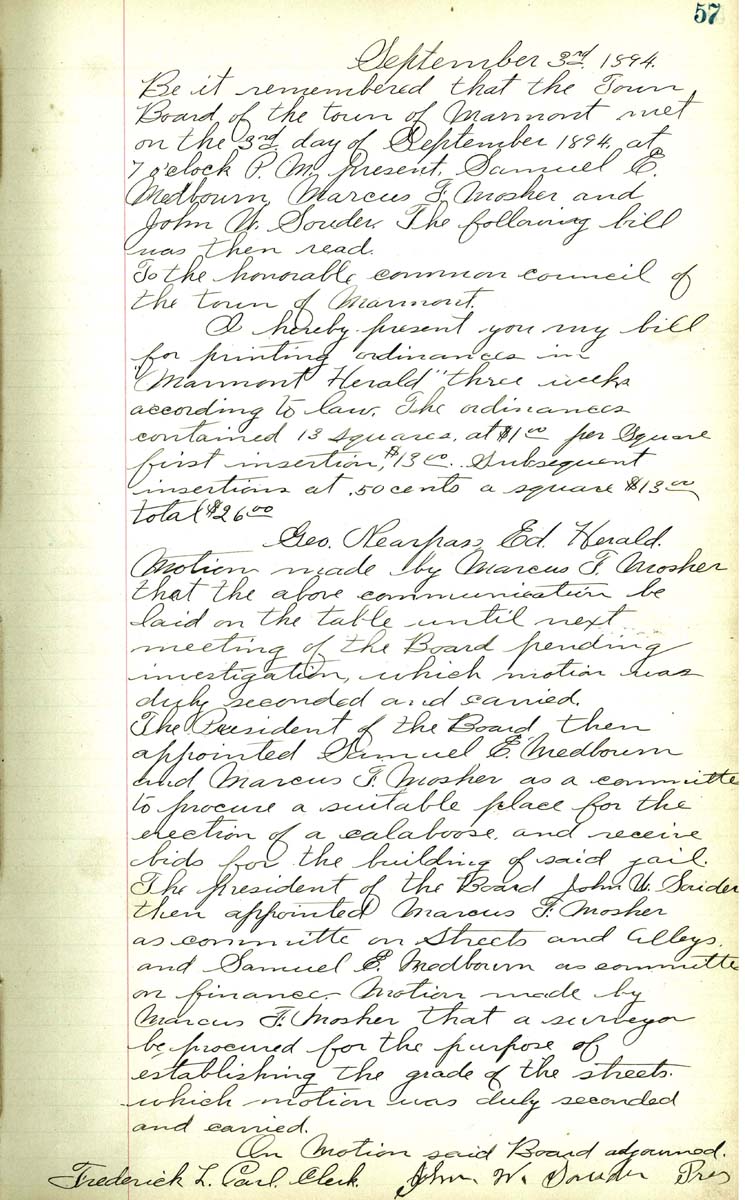 57
September 3rd 1894.
Be it remembered that the Town
Board of the town of Marmont met
on the 3rd day of September 1894, at
7 o'clock P. M. present, Samuel E.
Medbourn, Marcus F. Mosher and
John W. Souder. The following bill
was then read.
To the honorable common council of
the town of Marmont.
I hereby present you my bill
for printing ordinances in
"Marmont Herald" three weeks
according to law. The ordinances
contained 13 squares, at $1 00 per Square
first insertion, $13 00. Subsequent
insertions at .50 cents a square $13 00
total $26 00
Geo. Nearpass, Ed. Herald.
Motion made by Marcus F. Mosher
that the above communication be
laid on the table until next
meeting of the Board pending
investigation, which motion was
duly seconded and carried.
The President of the Board then
appointed Samuel E. Medbourn
and Marcus F. Mosher as a committe
to procure a suitable place for the
erection of a calaboose, and receive
bids for the building of said jail.
The president of the Board John W. Souder
then appointed Marcus F. Mosher
as committe on Streets and Alleys,
and Samuel E. Medbourn as committe
on finance. Motion made by
Marcus F. Mosher that a surveyor
be procured for the purpose of
establishing the grade of the streets.
which motion was duly seconded
and carried.
On Motion said Board adjourned.
Frederick L. Carl. Clerk. John W. Souder Pres